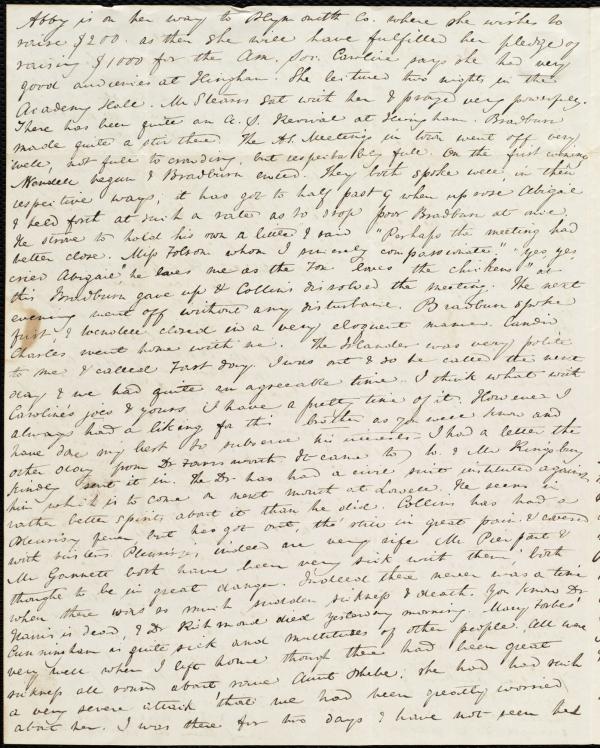 Abby is on her way to Plymouth Co. where she wishes to
raise $200. as then she will have fulfilled her pledge of
raising $1000 for the Am. Soc. Caroline says she had very
good audiences at Hingham. She lectured two nights in the
Academy Hall. Mr Stearns sat with her & prayed very powerfully.
There has been quite an A. S. Revival at Hingham. Bradburn
made quite a stir there. The A.S. Meetings in town went off very
well, not full to crowding, but respectably full. On the first evening
Wendell began & Bradburn ended. They both spoke well, in their
respective ways, it had got to half past 9 when up rose Abigail
& held forth at such a rate as to stop poor Bradburn at once.
He strove to hold his own a little & said "Perhaps the meeting had
better close. Miss Folsom whom I sincerely compassionate" "yes, yes,
cried Abigail, he loves me as the Fox loves the chickens" at
this Bradburn gave up & Collins dissolved the meeting. The next
evening went off without any disturbance. Bradburn spoke
first, & Wendell closed in a very eloquent manner.
Charles went home with me. The Islander was very polite
to me & called Fast day. I was out & so he called the next
day & we had quite an agreeable time. I think what with
Caroline's joes & yours, I have a pretty time of it. However I
always had a liking for this brother as you well know and
have done my best to subserve his interests. I had a letter the
other day from Dr Farnsworth. It came to & Mr Kingsbury
kindly sent it in. The Dr. has had a civil suit instituted against
him which is to come on next month at Lowell. He seems in
rather better spirits about it than he did. Collins has had a
Pleurisy fever, but has got out, tho' still in great pain & covered
with blisters. Pleurisies indeed are very rife. Mr Pierpont &
Mr Gannett both have been very sick with them, both
thought to be in great danger. Indeed there never was a time
when there was so much sudden sickness & death. You know Dr
Harris is dead, & Dr Richmond died yesterday morning. Mary Forbes'
Cunningham is quite sick and multitudes of other people. All were
very well when I left home though there had been great
sickness all round about save Aunt Phebe, she had had such
a very severe attack that we had been greatly worried
about her. I was there for two days & have not seen her